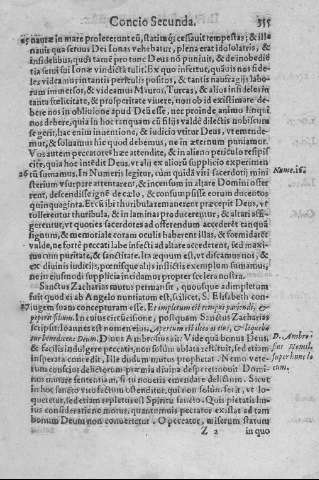 Concio Secunda. 355
25 nautæ in mare proiecerunt eũ, statimq; cessauit tempestas; & illa
nauis qua seruus Dei Ionas vehebatur, plena erat idololatris, &
infidelibus, quos tamē pro tunc Deus nō puniuit, & de inobediē
tia serui sui Ionæ vindictā tulit. Ex quo infertur, quāuis nos fide-
les videamur in tantis periculis positos, & tantis naufragijs labo-
rum immersos, & videamus Mauros, Turcas, & alios infideles in
tanta fœlicitate, & prosperitate viuere, non ob id existimare debe-
re nos in obliuione apud Deū esse, nec proinde animo linqui
nos debere, quia in hoc tanquam cū filijs valdē dilectis nobiscum
se gerit, hac enim inuentione, & iudicio vtitur Deus, vt emende-
mur, & soluamus hic quod debemus, ne in æternum puniamur.
Vos autem peccatores hæc attendite, & in alieno periculo respi
cite, quia hoc intēdit Deus, vt alij ex aliorū supplicio experimen
26 tū sumamus. In Numeris legitur, cùm quidā viri sacerdotij mini
sterium vsurpare attentarent, & incensum in altare Domini offer
rent, descendisse ignē de cælo, & consumpsisse eorum ducentos
quinquaginta. Et vt ibi thuribula remanerent præcepit Deus, vt
tollerentur thuribula, & in laminas producerentur, & altari affi-
gerentur, vt quoties sacerdotes ad offerendum accederēt tanquā
signum, & memoriale coram oculis haberent illas, & formidarēt
valde, ne fortè peccati labe infecti ad altare accederent, sed maxi-
ma cum puritate, & sanctitate. Ita æquum est, vt discamus nos, &
ex diuinis iudicijs, pœnisque alijs inflictis exemplum sumamus,
ne in eiusmodi supplicia incidamus propter scelera nostra.
Sanctus Zacharias mutus permansit, quousque adimpletum
fuit quod ei ab Angelo nuntiatum est, scilicet, S. Elisabeth con-
27 iugem suam concepturam esse. Et impletum est tempus pariendi, &
peperit filium. In cuius circuncisione, postquam Sanctus Zacharias
scripsit Ioannes est nomen eius. Apertum est illico os eius, & loqueba
tur benedicens Deum. Diuus Ambrosius ait: Vide quā bonus Deus
& facilis indulgere peccatis, non solùm ablata restituit, sed etiam
insperata concedit, Ille dudum mutus prophetat. Nemo vete-
rum conscius delictorum præmia diuina desperet: nouit Domi-
nus mutare sententiam, si tu noueris emendare delictum. Sicut
in hoc sancto viro factum ostenditur, qui non solùm serit, vt lo-
queretur, sed etiam repletus est Spiritu sancto. Quis pietatis il-
lius consideratione motus, quantumuis peccator existat ad tam
bonum Deum non conuertetur. O peccator, miserum statum
Z 2 in quo
Nume. 16.
D. Ambro
sius Homil.
super hunc lo
cum.